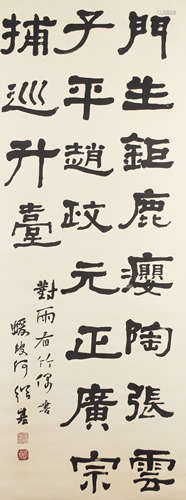 門生鉅鹿癭陶張雲
子平趙政元正廣宗
捕巡升臺
對雨看竹偶書
蝯叟何紹基